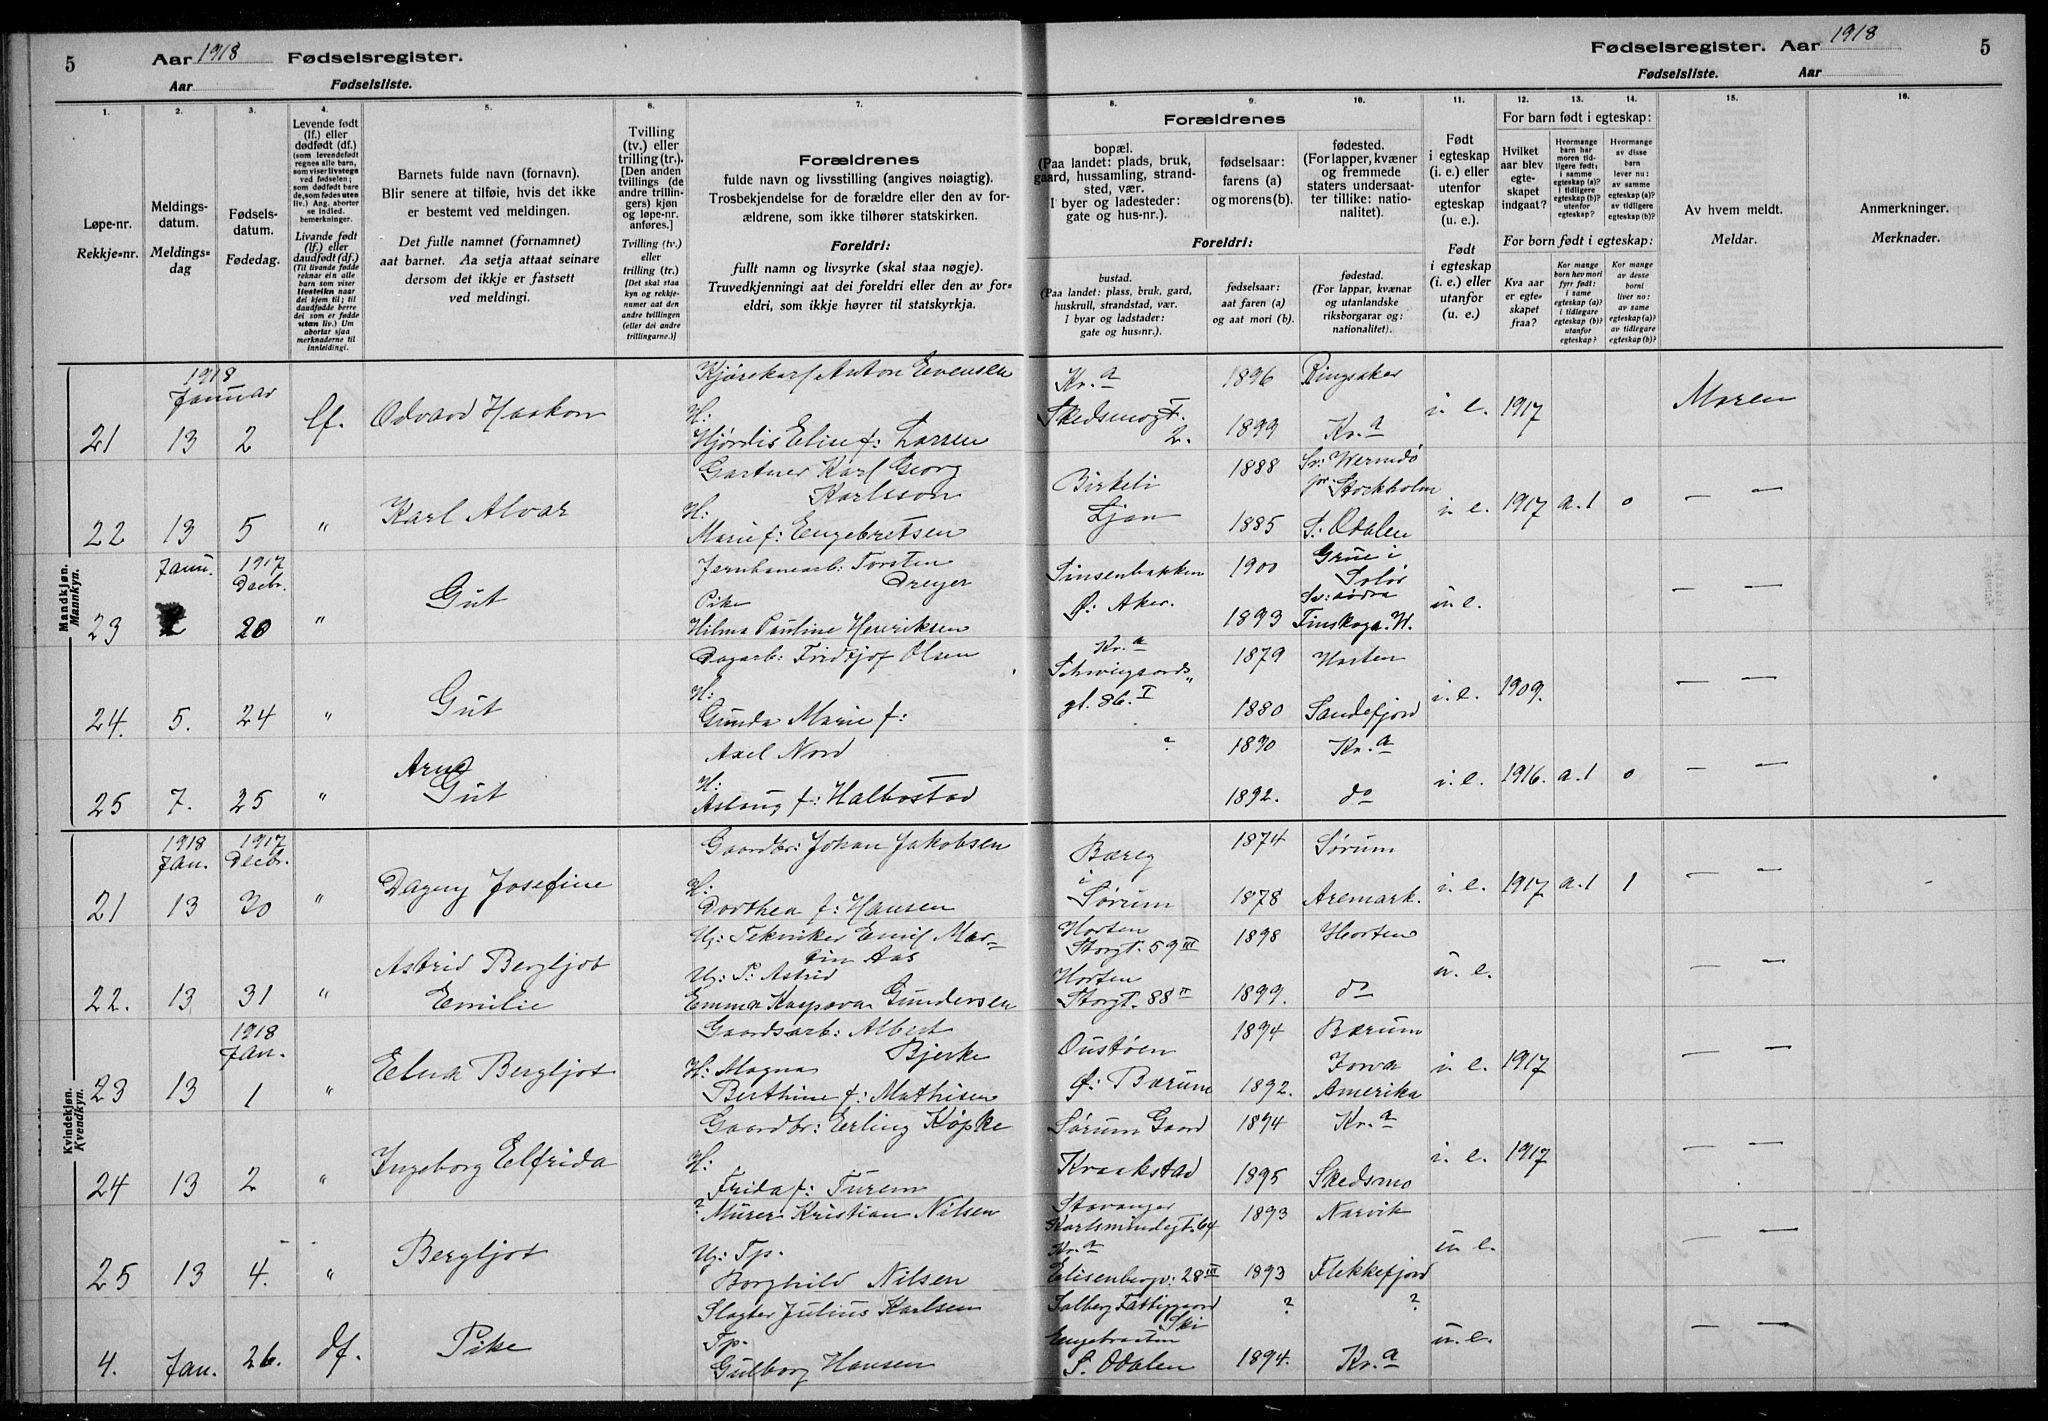 5
Aar 1918 Fødselsregister.
Aar Fødselsliste.
Fødselsregister. Aar 1918
5
Fødselsliste. Aar
1.
Løpe-nr.
Rekkje-nr.
2.
Meldings-
datum.
Meldings-
dag
3.
Fødsels-
datum.
Fødedag.
4.
Levende født
(lf.) eller
dødfødt (df.)
(som levendefødt
regnes alle barn,
som viser livstegn
ved fødselen;
som dødfødt bare
de, som fødes uten
liv.) Ang. aborter
se indled.
bemerkninger.
Livande født
(lf.) eller
daudfødt (df.)
(Til livande fødde
reknar ein alle
born som viser
livsteikn naar
dei kjem til; til
daudfødde berre
dei som er fødde
utan liv.) Um
abortar sjaa
merknaderne til
innleiding.
5.
Barnets fulde navn (fornavn).
Blir senere at tilføie, hvis det ikke
er bestemt ved meldingen.
Det fulle namnet (fornamnet)
aat barnet. Aa setja attaat seinare
dersom det ikkje er fastsett
ved meldingi.
6.
Tvilling
(tv.) eller
trilling (tr.).
[Den anden
tvillings (de
andre trillin-
gers) kjøn
og løpe-nr.
anføres.]
Tvilling (tv.)
eller
trilling (tr.)
[Det skal staa
kyn og rekkje-
numer aat den
andre tvillingen
(eller dei andre
trillingarne.)]
7.
Forældrenes
fulde navn og livsstilling (angives nøiagtig).
Trosbekjendelse for de forældre eller den av for-
ældrene, som ikke tilhører statskirken.
Foreldri:
fullt namn og livsyrke (skal staa nøgje).
Truvedkjenningi aat dei foreldri eller den av for-
eldri, som ikkje høyrer til statskyrkja.
Forældrenes
8.
bopæl.
(Paa landet: plads, bruk,
gaard, hussamling, strand-
sted, vær.
I byer og ladesteder:
gate og hus-nr.).
9.
fødselsaar:
farens (a)
og morens (b).
10.
fødested.
(For lapper, kvæner
og fremmede
staters undersaat-
ter tillike: natio-
nalitet).
Foreldri:
bustad.
(Paa landet: plass, bruk, gard,
huskrull, strandstad, vær.
I byar og ladstader:
gate og hus-nr.).
fødselsaar:
aat faren (a)
og aat mori (b).
fødestad.
(For lappar, kvænar
og utanlandske
riksborgarar og:
nationalitet).
11.
Født
i egteskap
(i. e.) eller
utenfor
egteskap
(u. e.).
Født
i egteskap
(i. e.) eller
utanfor
(u. e.).
12. 13. 14.
For barn født i egteskap:
Hvilket
aar blev
egte-
skapet
indgaat?
Hvormange
barn har
moren tid-
ligere født:
i samme
egteskap (a)?
i tidligere
egteskap (b)?
utenfor
egteskap?
Hvormange
av disse
barn
lever nu:
av samme
egteskap (a)?
av tidligere
egteskap (b)?
For born født i egteskap:
Kva aar
er egte-
skapet
fraa?
Kor mange
born hev mori
fyrr født:
i same
egteskap (a)?
i tidlegare
egteskap (b)?
utanfor
egteskap?
Kor mange
av desse
borni
liver no:
av same
egteskap (a)?
av tidlegare
egteskap (b)?
15.
Av hvem meldt.
Meldar.
16.
Anmerkninger.
Merknader.
Mandkjøn.
Mannkyn.
1918
Januar
21 13 2 lf. Odvard Haakon
Kjørekarl Anton Evensen
H:
Hjørdis Elise f: Larsen
Kr.a
Skedsmogt.
2.
1896 Ringsaker
1899 Kr.a
i. e. 1917 Moren
22 13 5 " Karl Alvar
Gartner Karl Georg
Karlsson
H:
Marie f: Engebretsen
Birkeli
Ljan
1888 Sv: Wermdø
pr Stockholm
1885 S. Odalen
i. e. 1917 a.1 0 — —
Janu. 1917
Decbr.
23 20 " Gut
Jernbanearb: Torsten
Dreyer
Pike
Hilma Pauline Henriksen
Sinsenbakken
Ø: Aker.
1900 Grue i
Solør
1893 Sv: södra
Finskoga. W.
u. e. — —
24. 5. 24 " Gut
Dagarb: Fridtjof Olsen
H:
Gunda Marie f:
Kr.a
Schweigaards„
gt. 86. I
1879 Horten
1880 Sandefjord
i. e. 1909. — —
25 7. 25 " Arne
Gut
Axel Nord
H:
Aslaug f: Halbostad
?
1890 Kr.a
1892. do
i. e. 1916. a.1 0 — —
Kvindekjøn.
Kvendkyn.
1918 1917
Jan. Decbr.
21 13 30 " Dagny Josefine
Gaardbr: Johan Jakobsen
H:
Dorthea f: Hansen
Bæreg
i
Sørum
1874 Sørum
1878 Aremark.
i. e. 1917 a.1 1 — —
22. 13 31 " Astrid Bergljot
Emilie
Ug: Tekniker Emil Mar-
tin Aas
Ug: P: Astrid
Emma Kaspara Gundersen
Horten
Storgt. 59 III
Horten
Storgt. 88 II
1898 Horten
1899. do
u. e. — —
1918
Jan.
23 13 1 " Elna Bergljot
Gaardsarb: Albert
Bjerke
H: Magna
Berthine f: Mathisen
Oustøen
Ø: Bærum
1894 Bærum
1892. Jowa
Amerika
i. e. 1917 — —
24 13 2 " Ingeborg Elfrida
Gaardbr: Erling Köpke
H:
Frida f: Turem
Sørum Gaard
Kraakstad
1894 Kr.a
1895 Skedsmo
i. e. 1917 — —
25 13 4. " Bergljot
? Murer Kristian Nilsen
Ug: Tp.
Borghild Nilsen
Stavanger
Karlsmindegt. 64
Kr.a
Elisenbergv: 28 III
1893 Narvik
1893 Flekkefjord
u. e. — —
4. Jan. 26. df. Pike
Slagter Julius Karlsen
Tp.
Gulborg Hansen
Solberg Fattiggaard
Ski
Engebraaten
S. Odalen
? ?
1894. Kr.a
u. e. — —